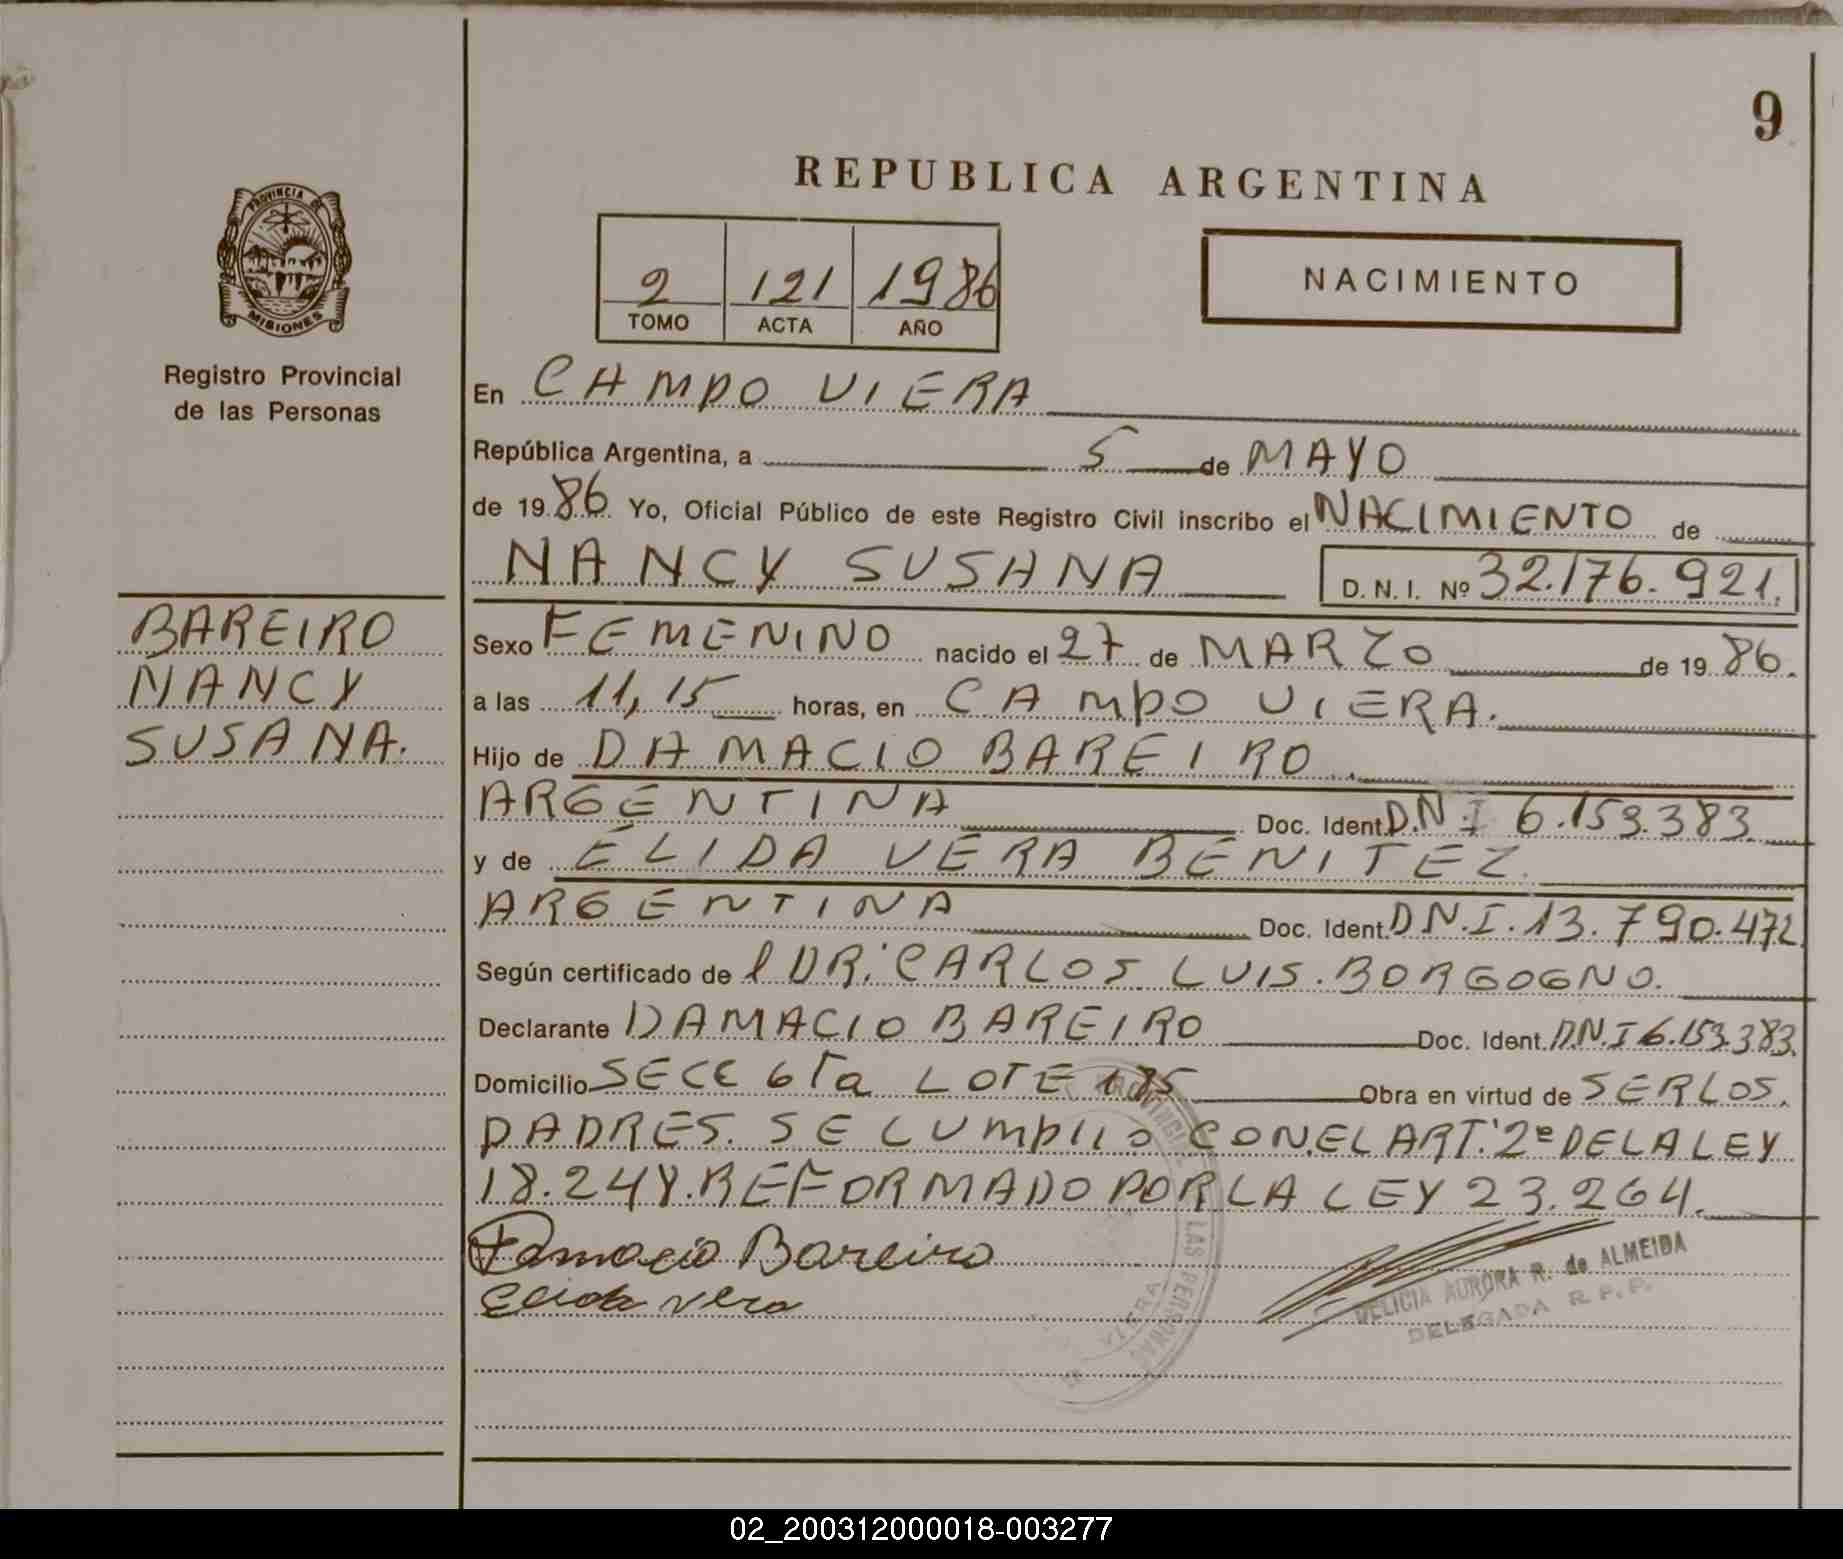 9
REPUBLICA ARGENTINA
PROVINCIA DE
MISIONES
Registro Provincial
de las Personas
2 121 1986
TOMO ACTA AÑO
NACIMIENTO
En CAMPO VIERA
República Argentina, a 5 de MAYO
de 1986 Yo, Oficial Público de este Registro Civil inscribo el NACIMIENTO de
NANCY SUSANA D. N. I. Nº 32.176.921.
BAREIRO
NANCY
SUSANA.
Sexo FEMENINO nacido el 27 de MARZO de 1986.
a las 11,15 horas, en CAMPO VIERA.
Hijo de DAMACIO BAREIRO
ARGENTINA Doc. Ident. D.N.I 6.153.383.
y de ELIDA VERA BENITEZ.
ARGENTINA Doc. Ident. D.N.I. 13.790.472.
Según certificado del DR. CARLOS LUIS. BORGOGNO.
Declarante DAMACIO BAREIRO Doc. Ident. D.N.I 6.153.383.
Domicilio SECC 6Ta LOTE 185 Obra en virtud de SER LOS.
PADRES. SE CUMPLIO CON EL ART. 2º DE LA LEY
18.248. REFORMADO POR LA LEY 23.264.
Damacio Bareiro
Elida Vera
DELICIA AURORA R. de ALMEIDA
DELEGADA R. P. P.
PROVINCIAL LAS PERSONAS
VIERA
02_200312000018-003277